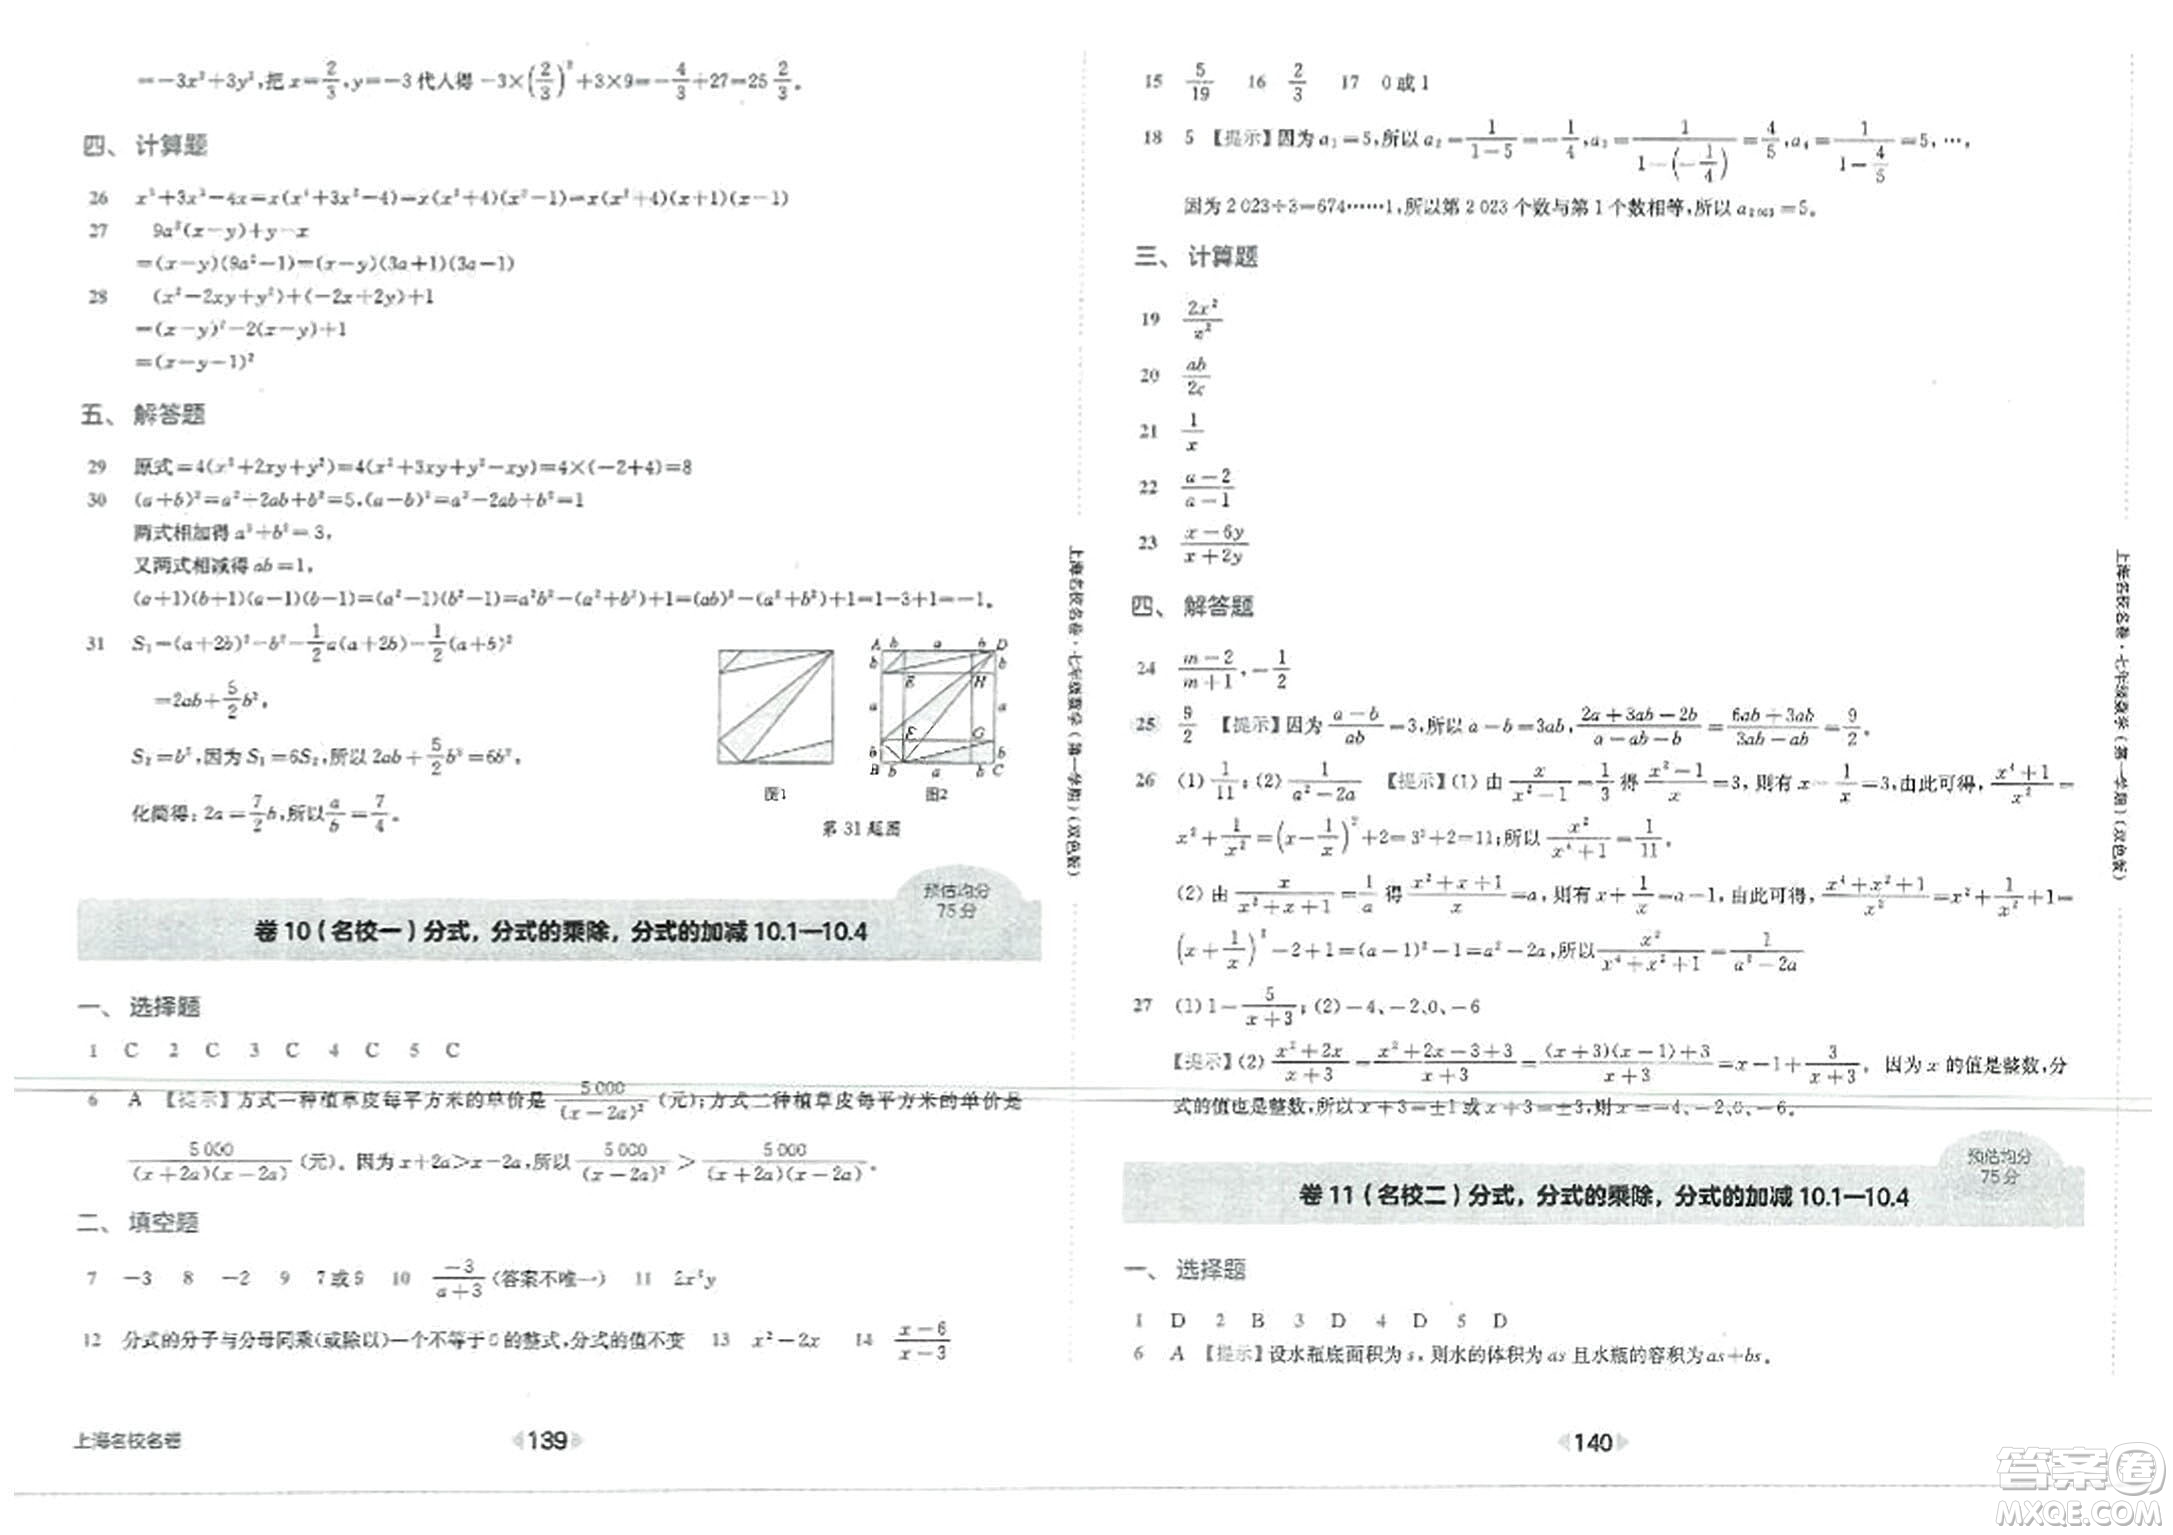 =-3x²+3y²,把 x=2/3,y=-3代人得 -3×(2/3)²+3×9=-4/3+27=25 2/3。
四、 计算题
26 x⁵+3x³-4x=x(x⁴+3x²-4)=x(x²+4)(x²-1)=x(x²+4)(x+1)(x-1)
27 9a²(x-y)+y-x
=(x-y)(9a²-1)=(x-y)(3a+1)(3a-1)
28 (x²-2xy+y²)+(-2x+2y)+1
=(x-y)²-2(x-y)+1
=(x-y-1)²
五、 解答题
29 原式=4(x²+2xy+y²)=4(x²+3xy+y²-xy)=4×(-2+4)=8
30 (a+b)²=a²-2ab+b²=5,(a-b)²=a²-2ab+b²=1
两式相加得 a²+b²=3,
又两式相减得 ab=1,
(a+1)(b+1)(a-1)(b-1)=(a²-1)(b²-1)=a²b²-(a²+b²)+1=(ab)²-(a²+b²)+1=1-3+1=-1。
31 S₁=(a+2b)²-b²-1/2a(a+2b)-1/2(a+b)²
=2ab+5/2b²,
S₂=b²,因为 S₁=6S₂,所以 2ab+5/2b²=6b²,
化简得:2a=7/2b,所以a/b=7/4。
A b a b D
b b
E H
a a
F G
b b
B b a b C
图1 图2
第 31 题图
预估均分
75分
卷 10(名校一)分式,分式的乘除,分式的加减 10.1—10.4
一、 选择题
1 C 2 C 3 C 4 C 5 C
6 A 【提示】方式一种植草皮每平方米的单价是 5 000/(x-2a)² (元);方式二种植草皮每平方米的单价是
5 000/(x+2a)(x-2a) (元)。因为 x+2a>x-2a,所以 5 000/(x-2a)² > 5 000/(x+2a)(x-2a)。
二、 填空题
7 -3 8 -2 9 7或9 10 -3/a+3(答案不唯一) 11 2x²y
12 分式的分子与分母同乘(或除以)一个不等于0的整式,分式的值不变 13 x²-2x 14 x-6/x-3
上海名校名卷
139
上海名校名卷·七年级数学(第一学期)(双色版)
15 5/19 16 2/3 17 0或1
18 5 【提示】因为 a₁=5,所以 a₂=1/1-5=-1/4,a₃=1/1-(-1/4)=4/5,a₄=1/1-4/5=5,…,
因为 2 023÷3=674……1,所以第 2 023 个数与第 1 个数相等,所以 a₂₀₂₃=5。
三、 计算题
19 2x²/z²
20 ab/2c
21 1/x
22 a-2/a-1
23 x-6y/x+2y
四、 解答题
24 m-2/m+1,-1/2
25 9/2 【提示】因为a-b/ab=3,所以 a-b=3ab,2a+3ab-2b/a-ab-b=6ab+3ab/3ab-ab=9/2。
26 (1) 1/11;(2) 1/a²-2a 【提示】(1) 由 x/x²-1=1/3得x²-1/x=3,则有 x-1/x=3,由此可得,x⁴+1/x²=
x²+1/x²=(x-1/x)²+2=3²+2=11;所以 x²/x⁴+1=1/11。
(2) 由 x/x²+x+1=1/a 得 x²+x+1/x=a,所以有 x+1/x=a-1,由此可得,x⁴+x²+1/x²=x²+1/x²+1=
(x+1/x)²-2+1=(a-1)²-1=a²-2a,所以x²/x⁴+x²+1=1/a²-2a
27 (1) 1-5/x+3;(2) -4、-2、0、-6
【提示】(2) x²+2x/x+3=x²+2x-3+3/x+3=(x+3)(x-1)+3/x+3=x-1+3/x+3, 因为 x 的值是整数,分
式的值也是整数,所以 x+3=±1 或 x+3=±3,则 x=-4、-2、0、-6。
预估均分
75分
卷 11(名校二)分式,分式的乘除,分式的加减 10.1—10.4
一、 选择题
1 D 2 B 3 D 4 D 5 D
6 A 【提示】设水瓶底面积为 s,则水的体积为 as 且水瓶的容积为 as+bs。
140
上海名校名卷·七年级数学(第一学期)(双色版)
答案卷
MXQE.COM